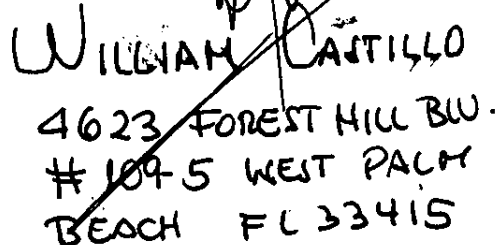 WILLIAM CASTILLO
4623 FOREST HILL BLV.
# 109-5 WEST PALM
BEACH FL 33415